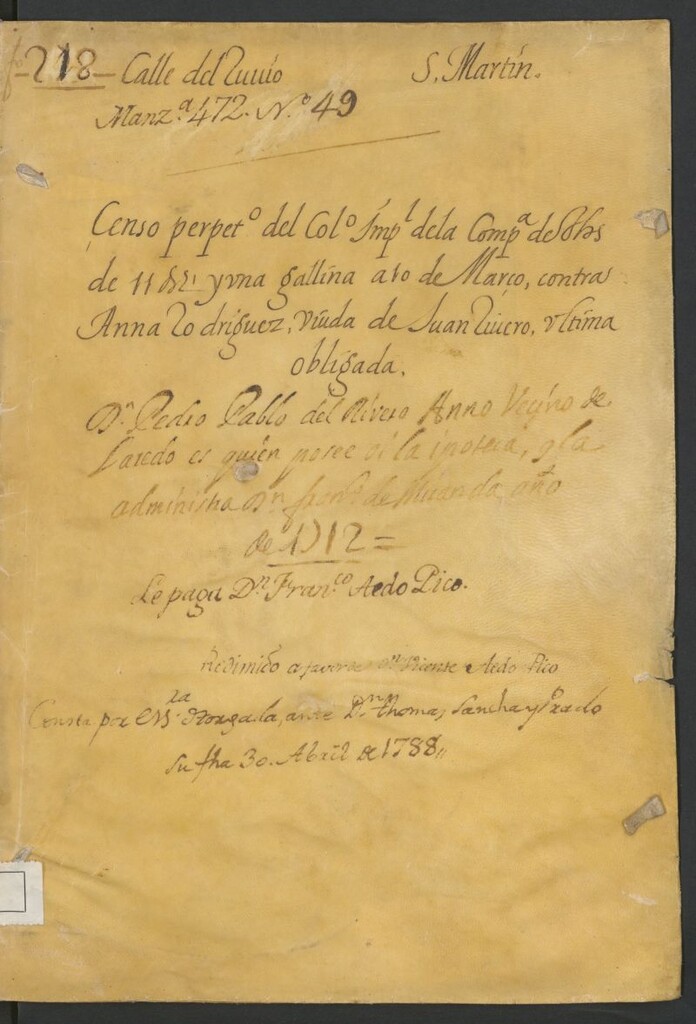 218 Calle del Ruuio S. Martin.
Manz.ª 472. N.º 49
Censo perpet.º del Col.º Imp.l dela Comp.ª de Jhs
de 11 yvna gallina a 10 de Março, contra
Anna Rodriguez, Viuda de Juan Riuero, vltima
obligada.
D.n Pedro Pablo del Rivero Anno Veçino de
Laredo es quien posee oi la ipoteca, y la
administra D.n de Miranda año
de 1712 =
Le paga D.n Fran.co Aedo Pico.
Redimido a favor de D.n Vicente Aedo Pico
Consta por Es.ra Otorgada, ante D.n Thomas Sancha y Prado
su fha 30. Abril de 1788,,